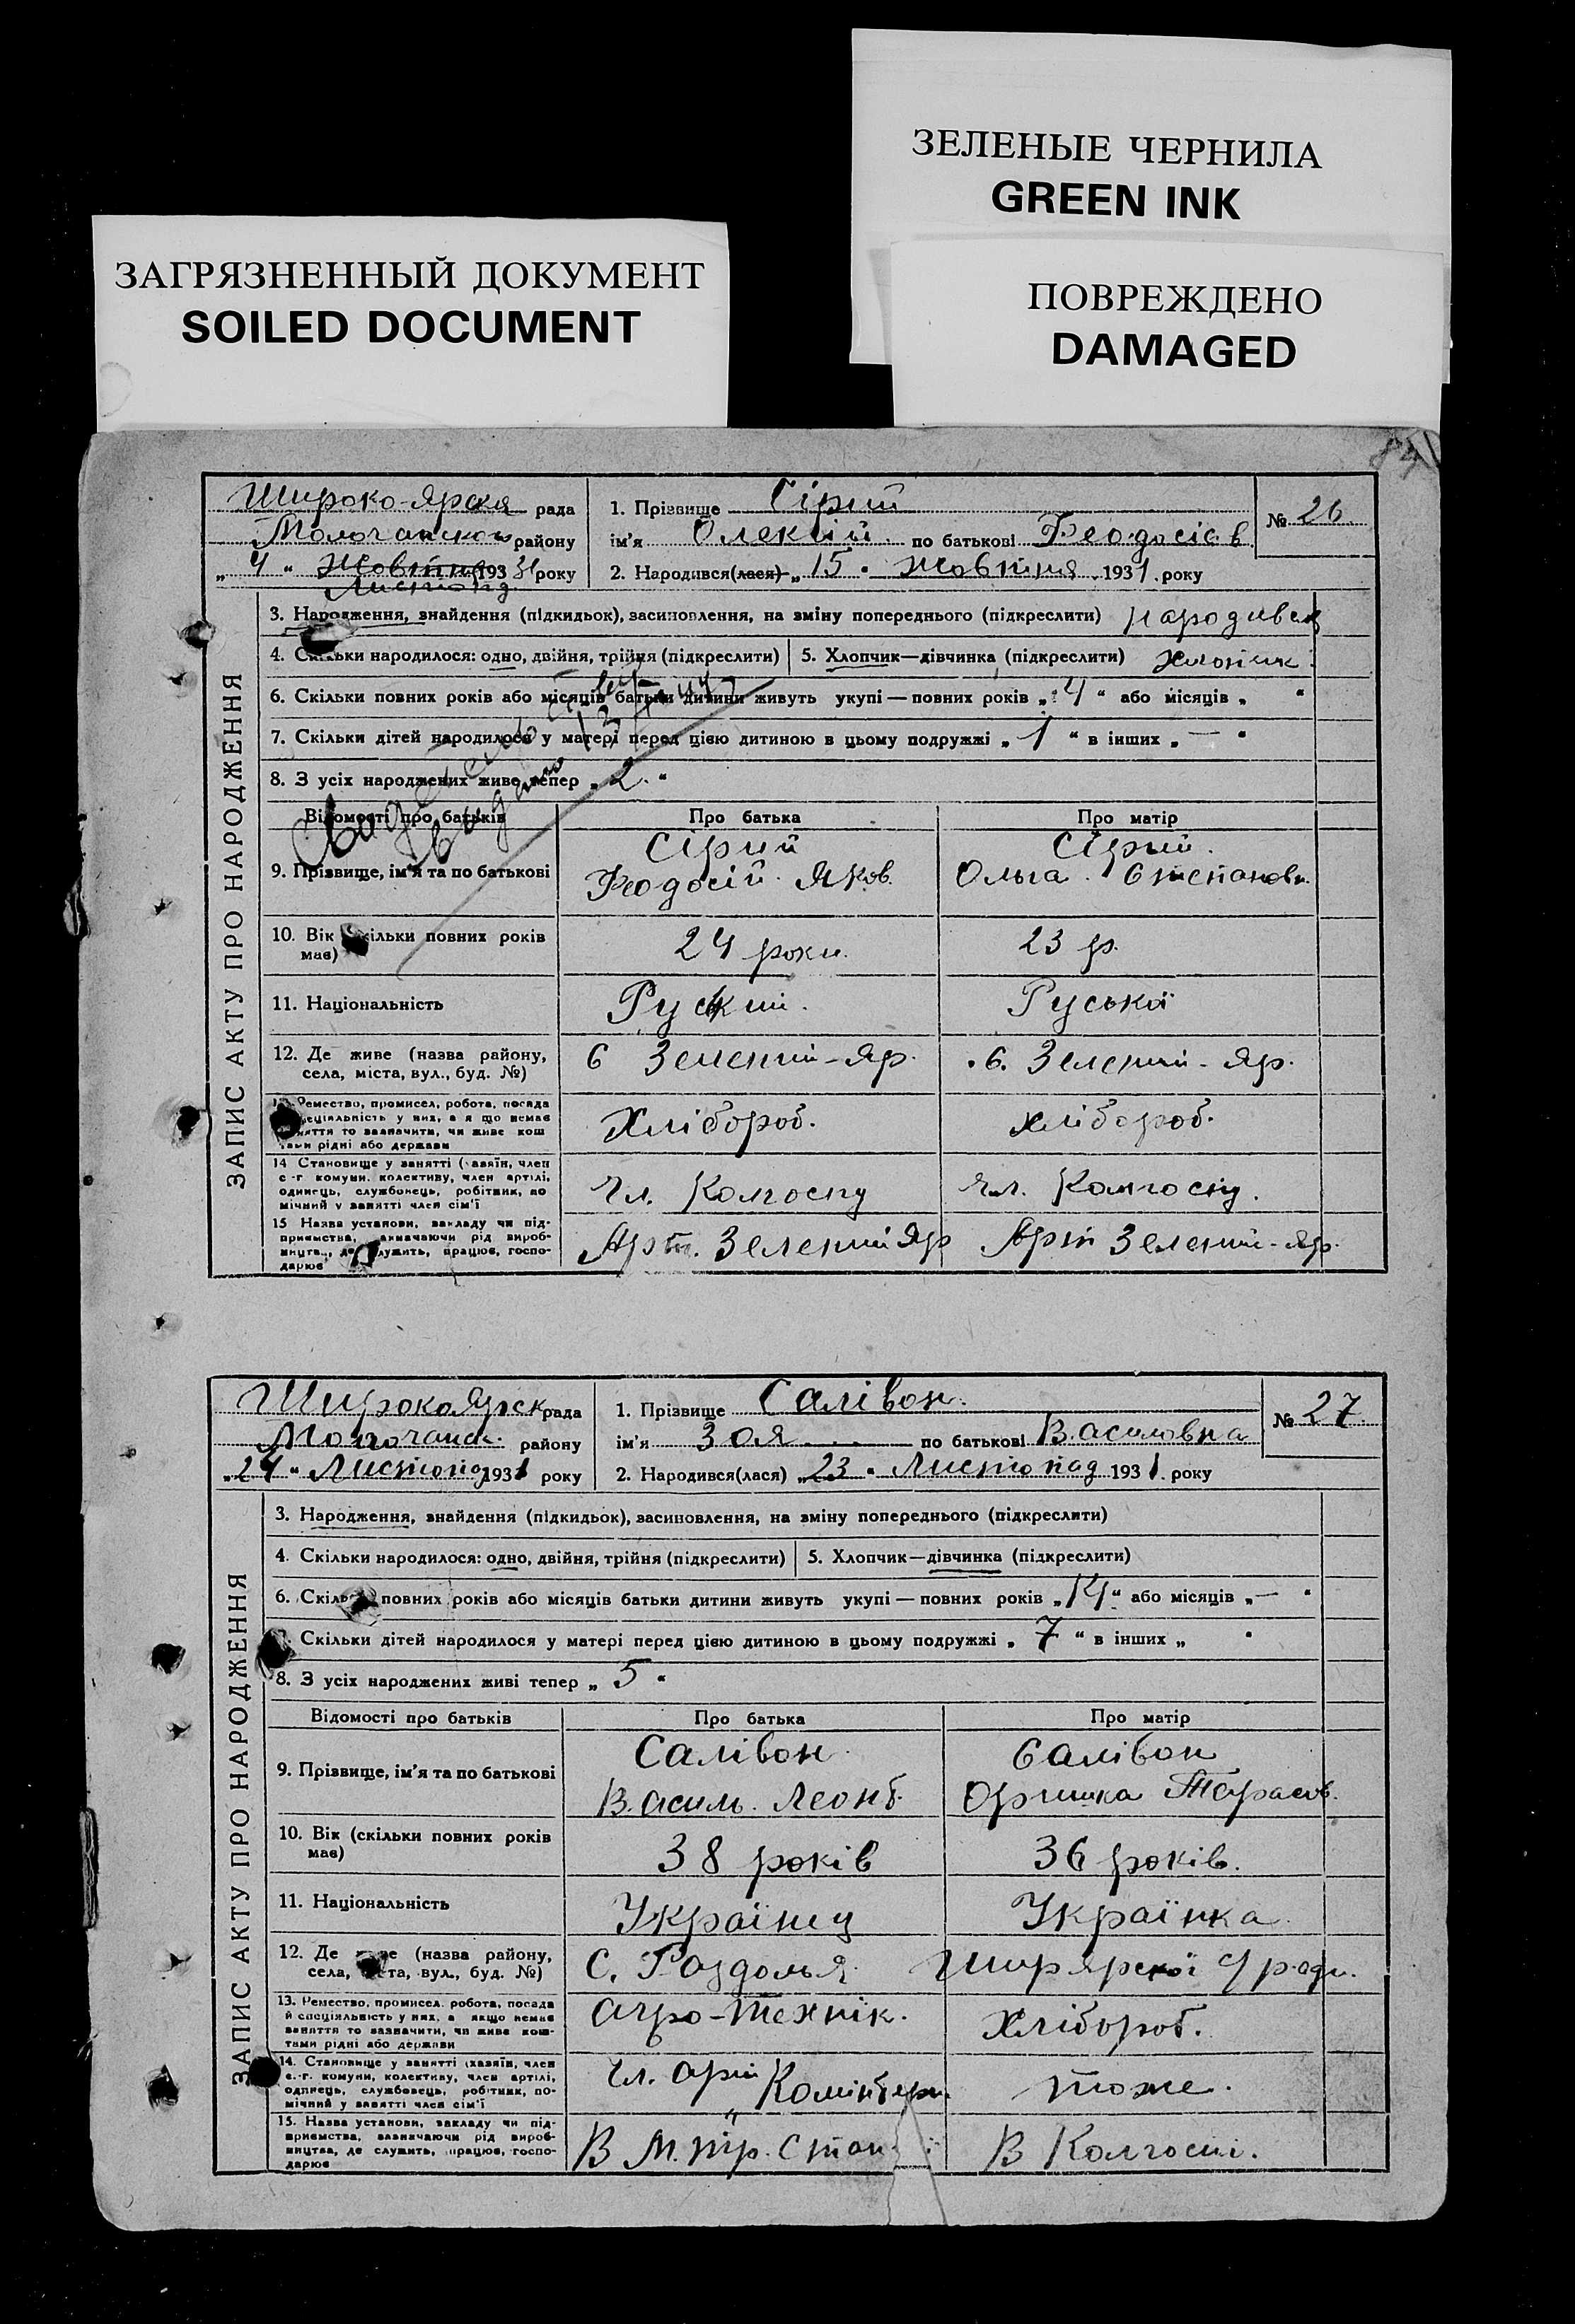 ЗЕЛЕНЫЕ ЧЕРНИЛА
GREEN INK
ЗАГРЯЗНЕННЫЙ ДОКУМЕНТ
SOILED DOCUMENT
ПОВРЕЖДЕНО
DAMAGED
Широко-Ярская рада
района
"4" Жовтня 1931 року
Листопад
1. Прізвище Сірий
ім'я Олексій по батькові Феодосієв
№ 26
2. Народився(лася) "15" Жовтня 1931 року
ЗАПИС АКТУ ПРО НАРОДЖЕННЯ
3. Народження, знайдення (підкидьок), засиновлення, на зміну попереднього (підкреслити) народився
4. Скільки народилося: одно, двійня, трійня (підкреслити) 5. Хлопчик—дівчинка (підкреслити) хлопчик
6. Скільки повних років або місяців батьки дитини живуть укупі — повних років "4" або місяців " "
7. Скільки дітей народилося у матері перед цією дитиною в цьому подружжі "1" в інших "—"
8. З усіх народжених живо тепер "2"
Відомості про батьків Про батька Про матір
9. Прізвище, ім'я та по батькові Сірий Феодосій Яков. Сірий Ольга Степановн.
10. Вік (скільки повних років має) 24 роки. 23 р.
11. Національність Руский. Руська
12. Де живе (назва району, села, міста, вул., буд. №) с Зелений-Яр. с. Зелений-Яр.
13. Ремество, промисел, робота, посада й спеціяльність у них, а якщо немає заняття то зазначити, чи живе коштами рідні або держави Хлібороб. хлібороб.
14 Становище у занятті (хазяїн, член с.-г. комуни, колективу, член артілі, одинець, службовець, робітник, помічний у занятті член сім'ї Чл. Колгоспу чл. Колгоспу.
15 Назва установи, закладу чи підприємства, зазначаючи рід виробництва, де служить, працює, господарює Арт. Зелений Яр Арт Зелений-Яр.
ШирокоЯрск рада
Молочанск. району
"24" Листопад 1931 року
1. Прізвище Салівон.
ім'я Зоя по батькові Василовна
№ 27.
2. Народився(лася) "23" Листопад 1931. року
ЗАПИС АКТУ ПРО НАРОДЖЕННЯ
3. Народження, знайдення (підкидьок), засиновлення, на зміну попереднього (підкреслити)
4. Скільки народилося: одно, двійня, трійня (підкреслити) 5. Хлопчик—дівчинка (підкреслити)
6. Скільки повних років або місяців батьки дитини живуть укупі — повних років "14" або місяців "—"
Скільки дітей народилося у матері перед цією дитиною в цьому подружжі "7" в інших " "
8. З усіх народжених живі тепер "5"
Відомості про батьків Про батька Про матір
9. Прізвище, ім'я та по батькові Салівон Василь Леонт. Салівон Оришка Тарасов.
10. Вік (скільки повних років має) 38 років 36 років.
11. Національність Українец Українка
12. Де живе (назва району, села, міста, вул., буд. №) С. Роздолья Шир Ярскої с/ради.
13. Ремество, промисел, робота, посада й спеціяльність у них, а якщо немає заняття то зазначити, чи живе коштами рідні або держави Агро-технік. Хлібороб.
14. Становище у занятті (хазяїн, член с.-г. комуни, колективу, член артілі, одинець, службовець, робітник, помічний у занятті член сім'ї Чл. арт "Комінтерн тоже.
15. Назва установи, закладу чи підприємства, зазначаючи рід виробництва, де служить, працює, господарює В М. тр. В Колгоспі.